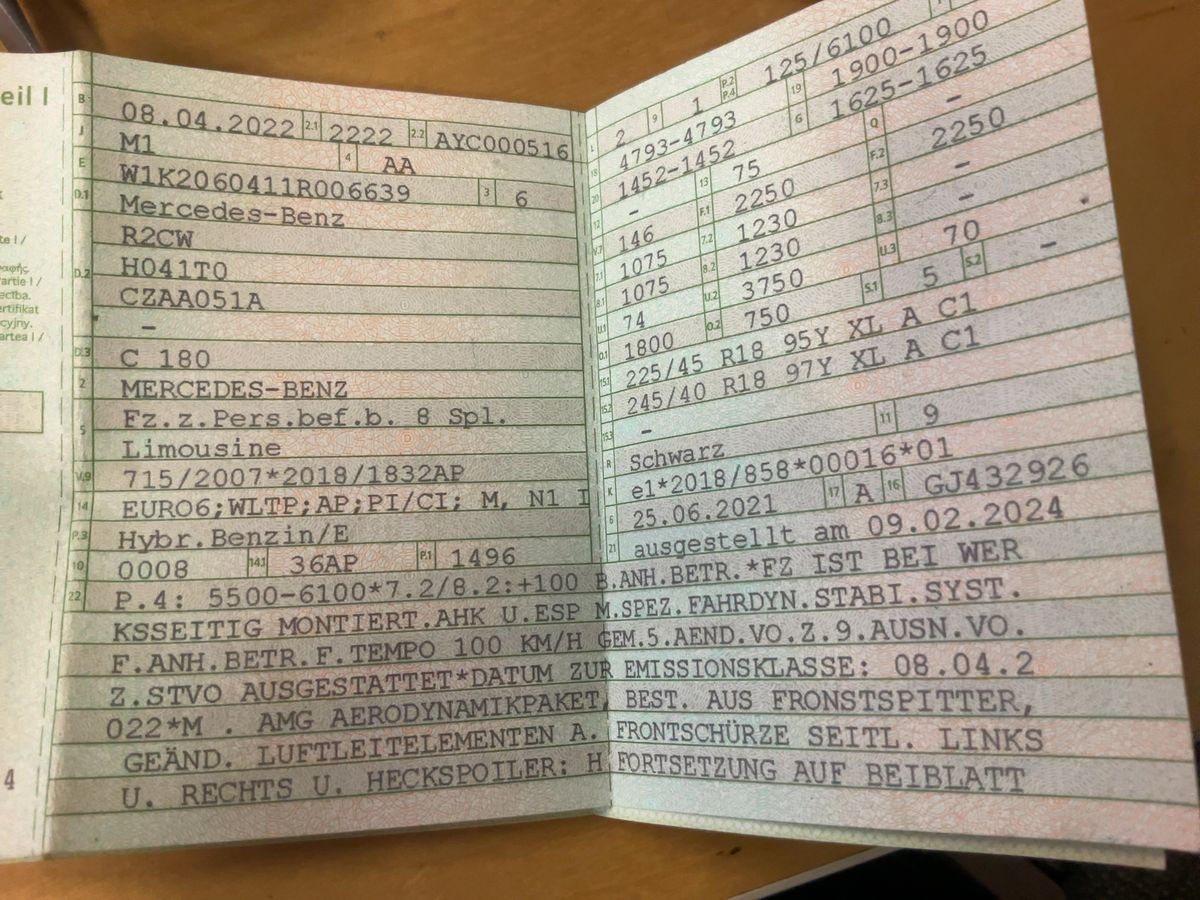 eil I
te I /
αφής
Partie I /
ecība.
ertifikat
cyjny.
artea I /
4
B 08.04.2022 2.1 2222 2.2 AYC000516
J M1 4 AA
E W1K2060411R006639 3 6
D.1 Mercedes-Benz
R2CW
D.2 H041T0
CZAA051A
–
D.3 C 180
2 MERCEDES-BENZ
Fz.z.Pers.bef.b. 8 Spl.
5 Limousine
V.9 715/2007*2018/1832AP
14 EURO6;WLTP;AP;PI/CI; M, N1 I
P.3 Hybr.Benzin/E
10 0008 14.1 36AP P.1 1496
L 2 9 1 P.2 P.4 125/6100
18 4793-4793 19 1900-1900
20 1452-1452 G 1625-1625
12 – 13 75 Q –
V.7 146 F.1 2250 F.2 2250
7.1 1075 7.2 1230 7.3 –
8.1 1075 8.2 1230 8.3 –
U.1 74 U.2 3750 U.3 70
O.1 1800 O.2 750 S.1 5 S.2 –
15.1 225/45 R18 95Y XL A C1
15.2 245/40 R18 97Y XL A C1
15.3 –
R Schwarz 11 9
K e1*2018/858*00016*01
6 25.06.2021 17 A 16 GJ432926
21 ausgestellt am 09.02.2024
22 P.4: 5500-6100*7.2/8.2:+100 B.ANH.BETR.*FZ IST BEI WER
KSSEITIG MONTIERT.AHK U.ESP M.SPEZ.FAHRDYN.STABI.SYST.
F.ANH.BETR.F.TEMPO 100 KM/H GEM.5.AEND.VO.Z.9.AUSN.VO.
Z.STVO AUSGESTATTET*DATUM ZUR EMISSIONSKLASSE: 08.04.2
022*M . AMG AERODYNAMIKPAKET, BEST. AUS FRONSTSPITTER,
GEÄND. LUFTLEITELEMENTEN A. FRONTSCHÜRZE SEITL. LINKS
U. RECHTS U. HECKSPOILER: H FORTSETZUNG AUF BEIBLATT